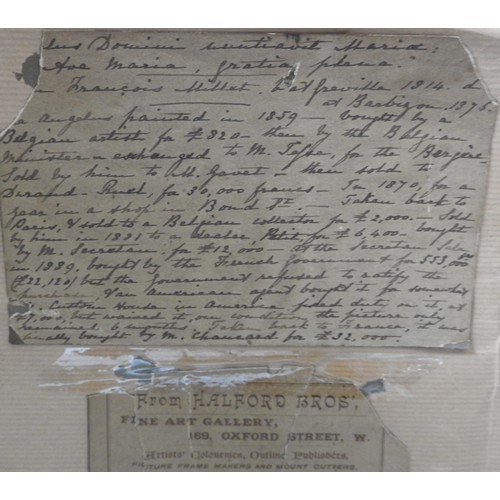 lus Domini nuntiavit Mariæ:
Ave Maria, gratia plena."
François Millet, b. at Greville 1814. d.
at Barbizon. 1875.
Angelus painted in 1859 — bought by a
Belgian artist for £320 — then by the Belgian
Minister — exchanged to M. Tesse, for the Bergère
Sold by him to M. Gavet — then sold to
Durand-Ruel, for 30,000 francs — In 1870, for a
year in a shop in Bond St. — Taken back to
Paris, & sold to a Belgian collector for £2,000. — Sold
by him in 1881 to a dealer Petit for £6,400 — bought
by M. Secretan for £12,000 — at the Secretan Sale
in 1889, bought by the French Government for 553,000
(£22,120) but the Government refused to ratify the
purchase, & an American agent bought it for somewhat
Custom House in America fixed duty on it, at
£7,000, but waived it, on condition the picture only
remained 6 months. Taken back to France, it was
finally bought by M. Chauchard for £32,000.
From HALFORD BROS',
FINE ART GALLERY,
169, OXFORD STREET, W.
Artists' Colourmen, Outline Publishers,
PICTURE FRAME MAKERS AND MOUNT CUTTERS.